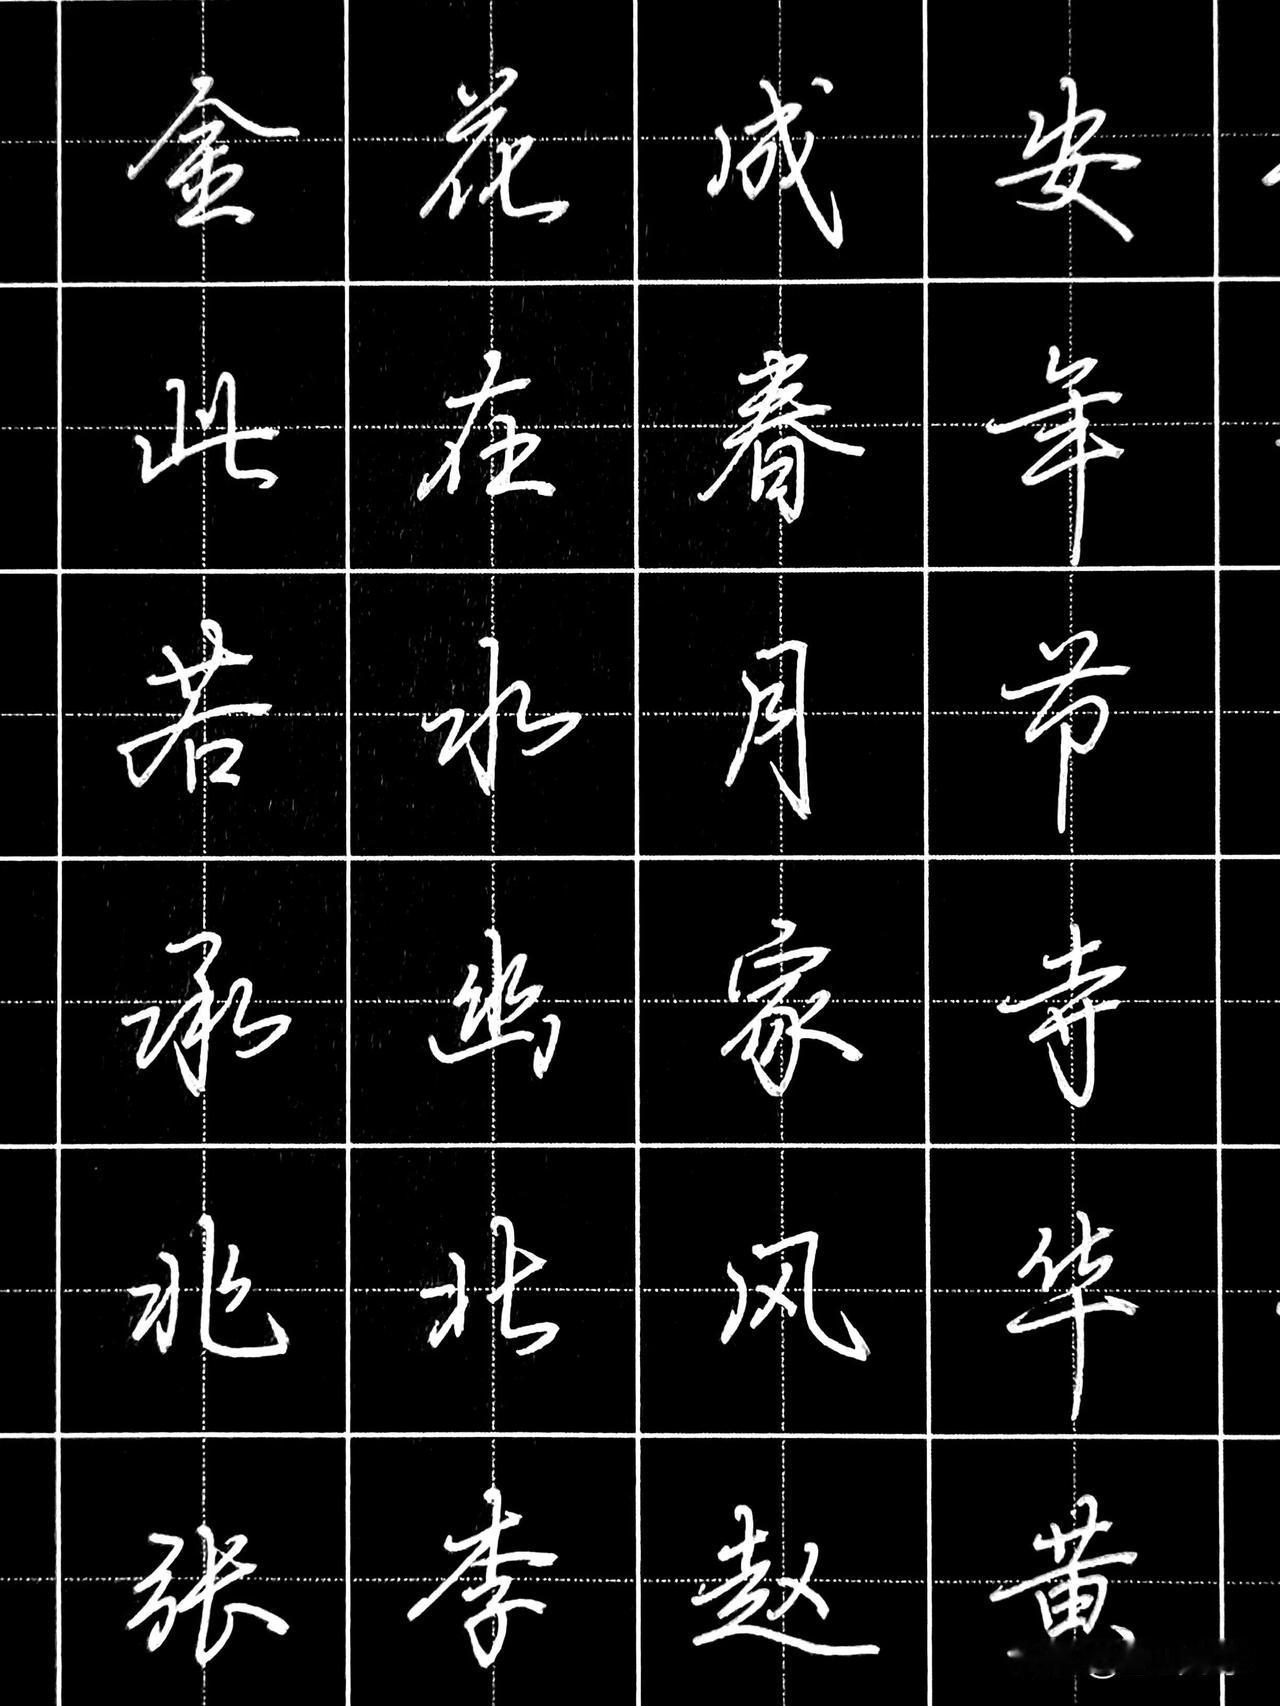 金花成安
此在春年
若水月节
承幽家寺
兆北风华
张李赵黄